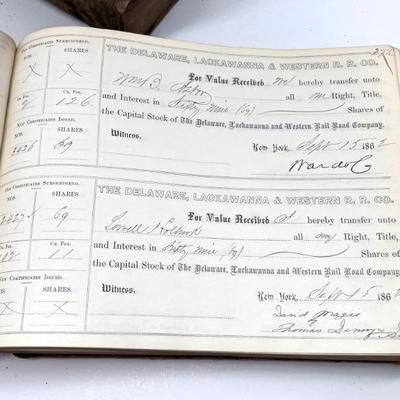 272
OLD CERTIFICATES SURRENDERED.
NOS. SHARES
X X
CR. FOL.
2 126
NEW CERTIFICATES ISSUED.
NOS. SHARES
2426 69
THE DELAWARE, LACKAWANNA & WESTERN R. R. CO.
For Value Received We hereby transfer unto
Wm B. all Right, Title,
and Interest in Sixty Nine (69) Shares of
the Capital Stock of The Delaware, Lackawanna and Western Rail Road Company.
Witness. New York, Sept 15 1862
Ward & Co
OLD CERTIFICATES SURRENDERED.
NOS. SHARES
69
CR. FOL.
11
NEW CERTIFICATES ISSUED.
NOS. SHARES
X X
THE DELAWARE, LACKAWANNA & WESTERN R. R. CO.
For Value Received I hereby transfer unto
Lowell Holbrook all my Right, Title,
and Interest in Sixty Nine (69) Shares of
the Capital Stock of The Delaware, Lackawanna and Western Rail Road Company.
Witness. New York, Sept 15 1862
David Magie
Thomas Denny